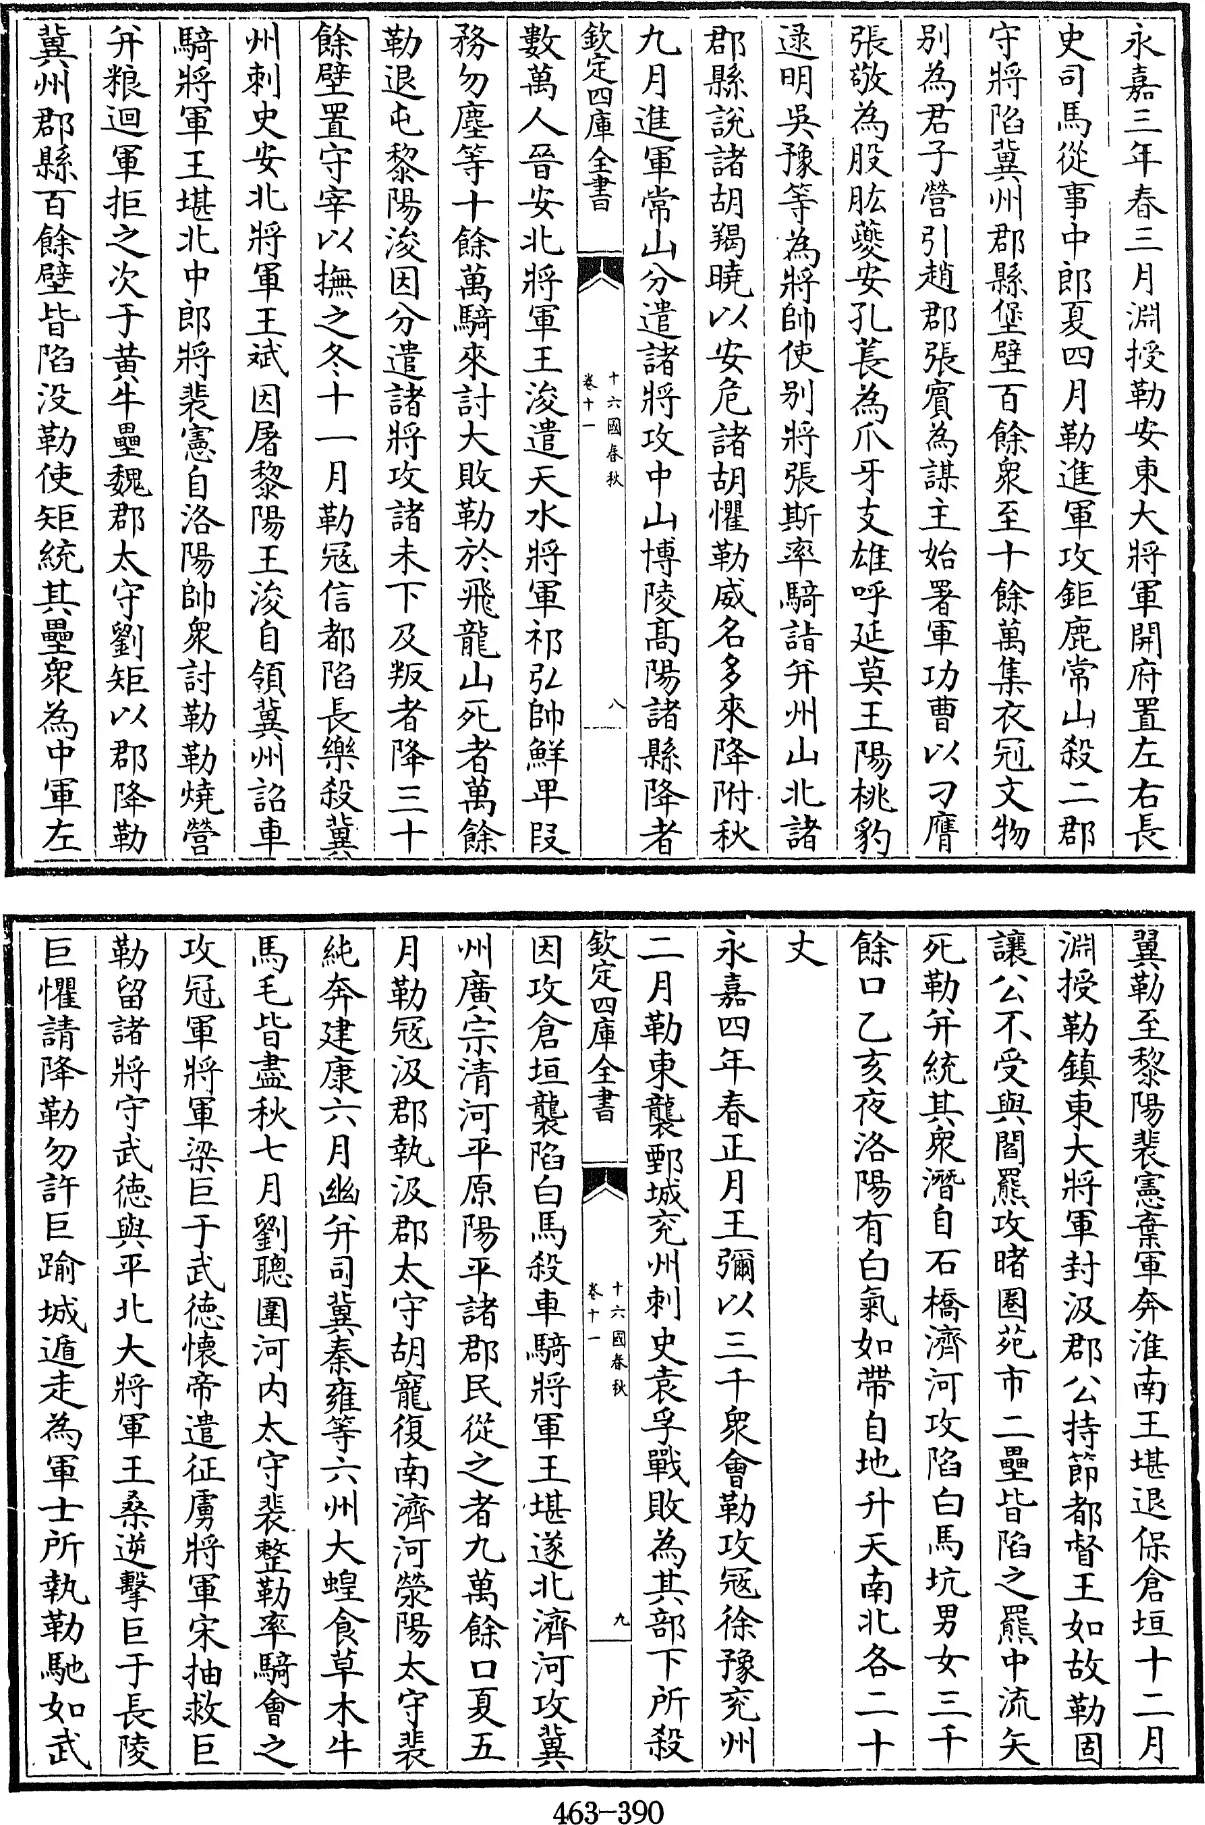 永嘉三年春三月淵授勒安東大將軍開府置左右長
史司馬從事中郎夏四月勒進軍攻鉅鹿常山殺二郡
守將陷冀州郡縣堡壁百餘衆至十餘萬集衣冠文物
别為君子營引趙郡張賓為謀主始署軍功曹以刁膺
張敬為股肱夔安孔萇為爪牙支雄呼延莫王陽桃豹
逯明吳豫等為將帥使别將張斯率騎詣并州山北諸
郡縣說諸胡羯曉以安危諸胡懼勒威名多來降附秋
九月進軍常山分遣諸將攻中山博陵髙陽諸縣降者
欽定四庫全書
十六國春秋
卷十一
八
數萬人晉安北將軍王浚遣天水將軍祁弘帥鮮卑段
務勿塵等十餘萬騎來討大敗勒於飛龍山死者萬餘
勒退屯黎陽浚因分遣諸將攻諸未下及叛者降三十
餘壁置守宰以撫之冬十一月勒冦信都陷長樂殺冀
州刺史安北將軍王斌因屠黎陽王浚自領冀州詔車
騎將軍王堪北中郎將裴憲自洛陽帥衆討勒勒燒營
弁粮迴軍拒之次于黄牛壘魏郡太守劉矩以郡降勒
冀州郡縣百餘壁皆陷没勒使矩統其壘衆為中軍左
翼勒至黎陽裴憲棄軍奔淮南王堪退保倉垣十二月
淵授勒鎮東大將軍封汲郡公持節都督王如故勒固
讓公不受與閻羆攻䐗圈苑市二壘皆陷之羆中流矢
死勒弁統其衆潛自石橋濟河攻陷白馬坑男女三千
餘口乙亥夜洛陽有白氣如帶自地升天南北各二十
丈
永嘉四年春正月王彌以三千衆會勒攻冦徐豫兖州
二月勒東襲鄄城兖州刺史袁孚戰敗為其部下所殺
欽定四庫全書
十六國春秋
卷十一
九
因攻倉垣襲陷白馬殺車騎將軍王堪遂北濟河攻冀
州廣宗清河平原陽平諸郡民從之者九萬餘口夏五
月勒冦汲郡執汲郡太守胡寵復南濟河滎陽太守裴
純奔建康六月幽并司冀秦雍等六州大蝗食草木牛
馬毛皆盡秋七月劉聰圍河内太守裴整勒率騎會之
攻冠軍將軍梁巨于武德懷帝遣征虜將軍宋抽救巨
勒留諸將守武德與平北大將軍王桑逆擊巨于長陵
巨懼請降勒勿許巨踰城遁走為軍士所執勒馳如武
463-390